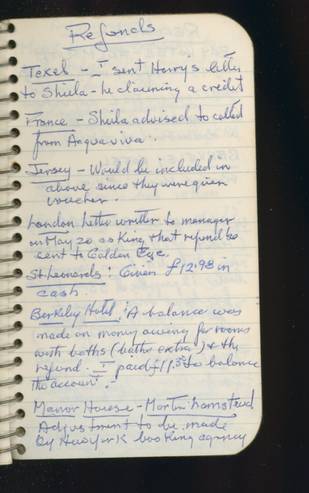 Refunds
Texel - I sent Harry's letter
to Shiela - he claiming a credit
France - Sheila advised to collect
from Acquaviva.
Jersey - Would be included in
above since they were given
voucher.
London letter written to manager
on May 20 asking that refund be
sent to Golden Eye.
St Leonards: Given £12.98 in
cash.
Berkeley Hotel: A balance was
made on money owing for rooms
with baths (baths extra) & the
refund. I paid to balance
the account.
Manor House - Morton hamstead
Adjustment to be made
by New York booking agency